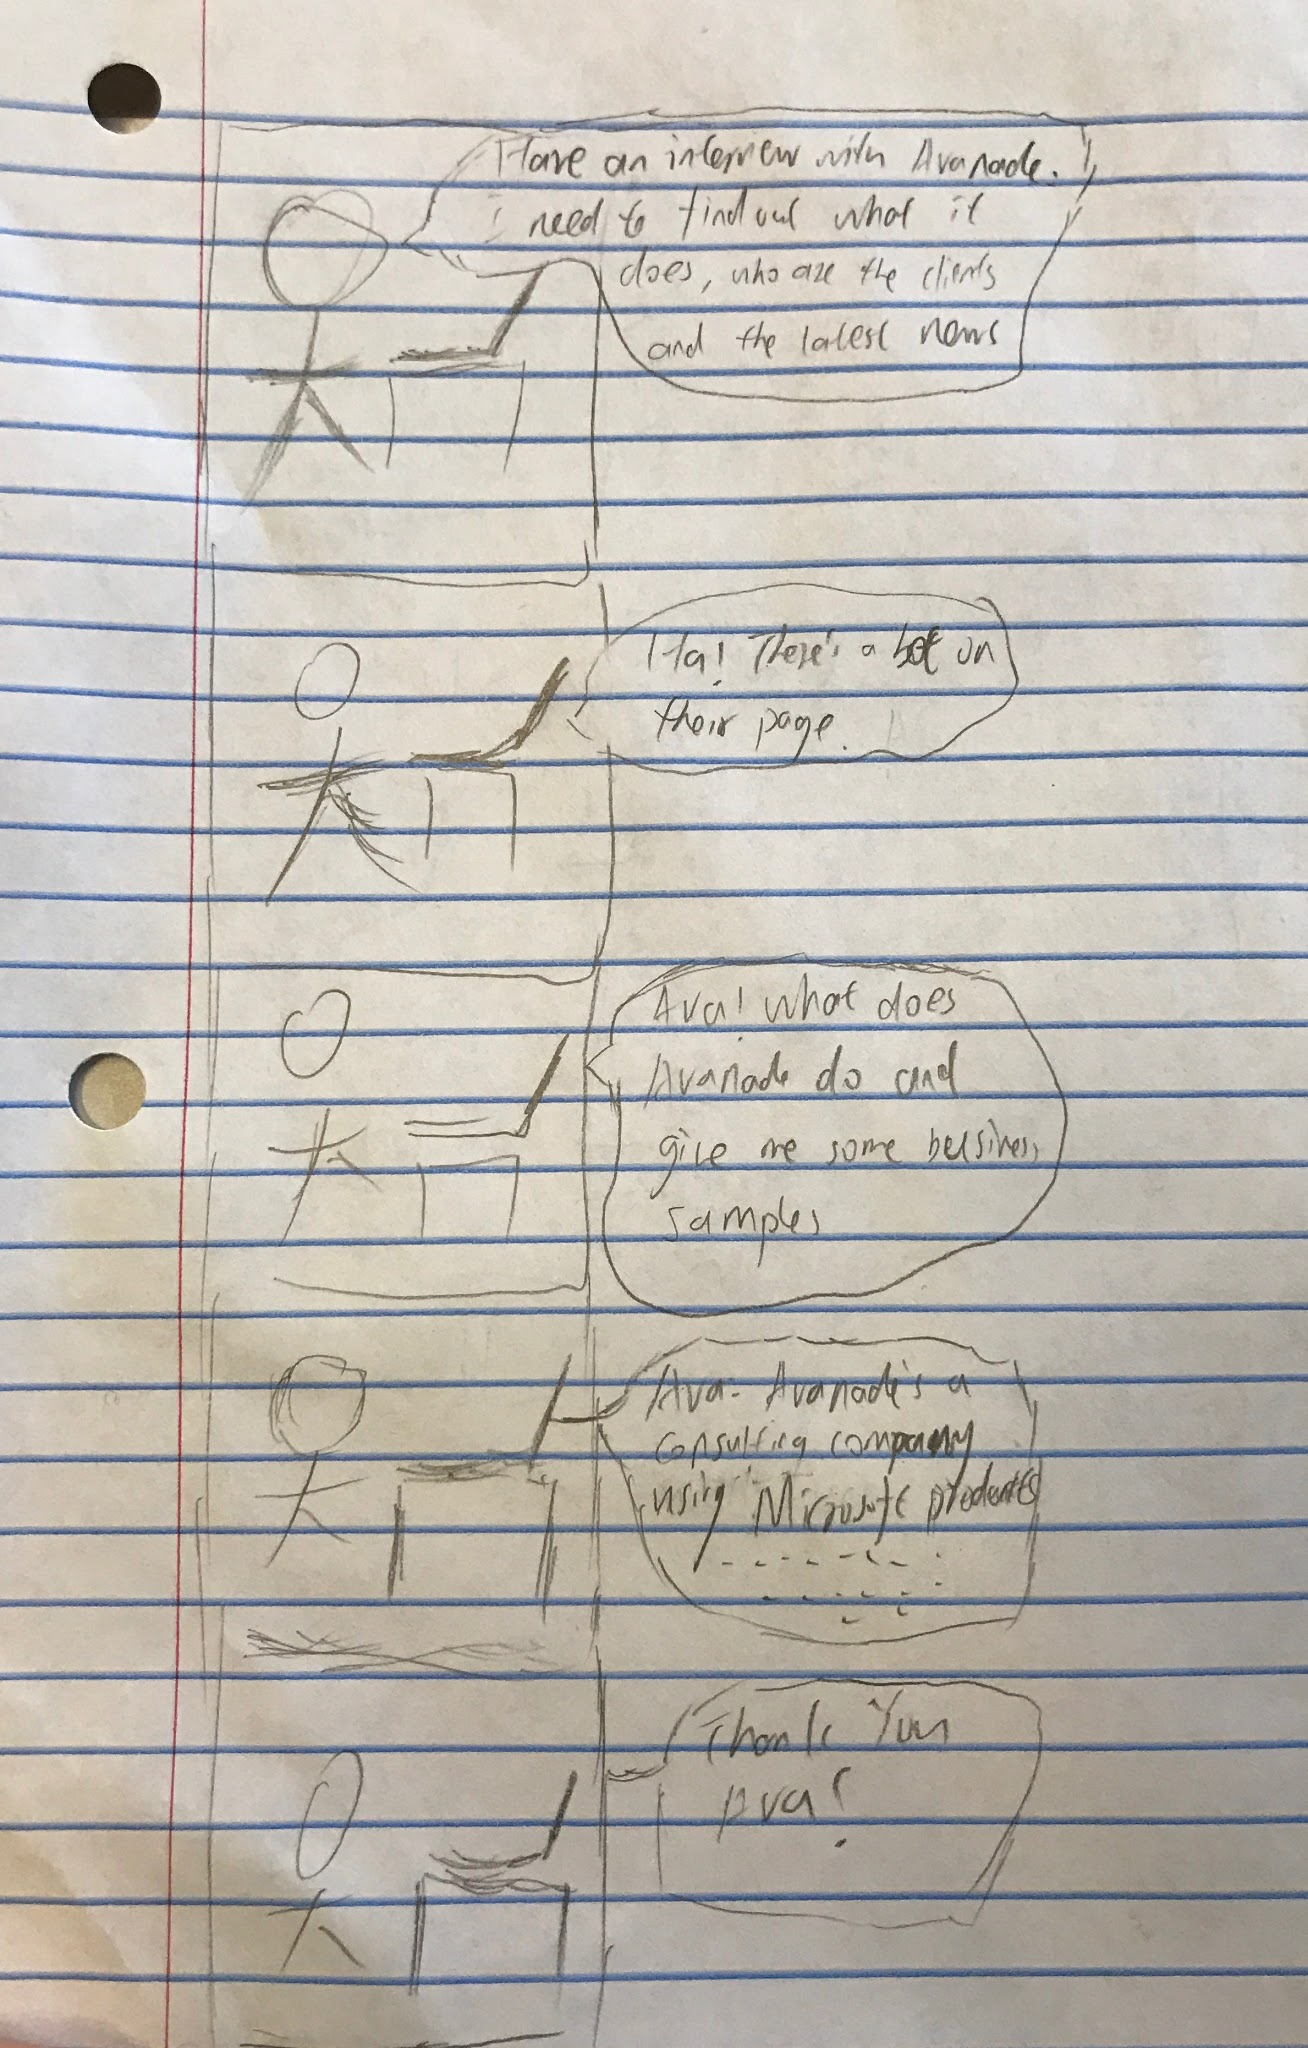 Have an interview with Avanade.
i need to find out what it
does, who are the clients
and the latest news
Ha! There's a bot on
their page.
Ava! what does
Avanade do and
give me some business
samples
Ava- Avanade's a
consulting company
using Microsoft products
Thank You
Ava!